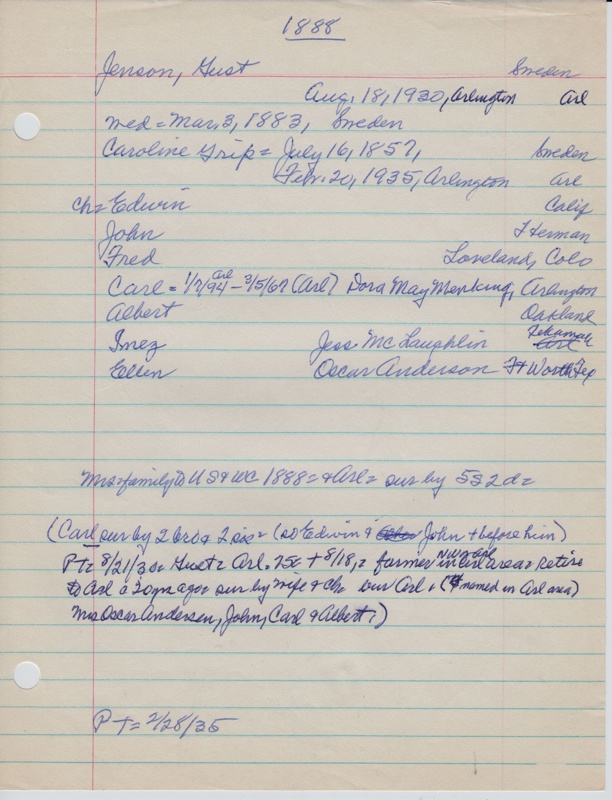 1888
Jenson, Gust Sweden
Aug. 18, 1930, Arlington Arl
wed = Mar. 3, 1883, Sweden
Caroline Grip = July 16, 1857, Sweden
Feb. 20, 1935, Arlington Arl
ch = Edwin Calif
John Herman
Fred Loveland, Colo
Carl = 1/7/94 Arl - 3/5/67 (Arl) Dora May Menking, Arlington
Albert Oakland
Inez Jess McLaughlin Tekamah
Ellen Oscar Anderson Ft Worth Tex
Mrs = family to US & WC 1888 = & Arl = sur by 5s 2d =
(Carl sur by 2 bro & 2 sis = (so Edwin & John + before him)
PT = 8/21/30 = Gust = Arl. 75c + 8/18, = farmer in NW of Arl area = retire
to Arl a 20 yr ago = sur by wife & ch our Arl + (4 named in Arl area)
Mrs Oscar Andersen, John, Carl & Albert;)
PT = 2/28/35